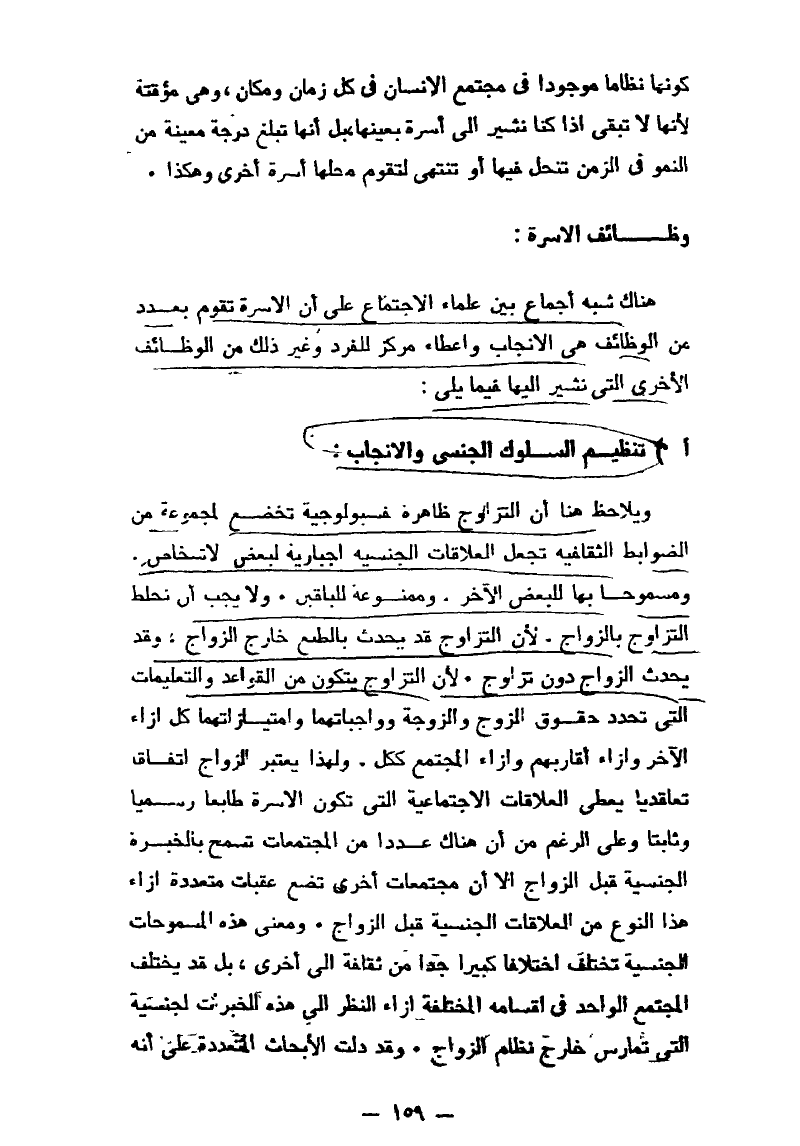 كونها نظاما موجودا فى مجتمع الانسان فى كل زمان ومكان ، وهى مؤقتة
لأنها لا تبقى اذا كنا نشير الى أسرة بعينها بل أنها تبلغ درجة معينة من
النمو فى الزمن تنحل فيها أو تنتهى لتقوم محلها أسرة أخرى وهكذا .
وظـــــائف الاسرة :
هناك شبه أجماع بين علماء الاجتماع على أن الاسرة تقوم بعـــدد
من الوظائف هى الانجاب واعطاء مركز للفرد وغير ذلك من الوظـــائف
الأخرى التى نشير اليها فيما يلى :
أ ) تنظيـم السـلوك الجنسى والانجاب :
ويلاحظ هنا أن التزاوج ظاهرة فسيولوجية تخضـع لمجموعة من
الضوابط الثقافيه تجعل العلاقات الجنسيه اجبارية لبعض لاشخاص .
ومسموحـا بها للبعض الآخر . وممنـوعة للباقين . ولا يجب أن نخلط
التزاوج بالزواج . لأن التزاوج قد يحدث بالطبع خارج الزواج ، وقد
يحدث الزواج دون تزاوج . لأن التزاوج يتكون من القواعد والتعليمات
التى تحدد حقـوق الزوج والزوجة وواجباتهما وامتيـازاتهما كل ازاء
الآخر وازاء أقاربهم وازاء المجتمع ككل . ولهذا يعتبر الزواج اتفـاق
تعاقديا يعطى العلاقات الاجتماعية التى تكون الاسرة طابعا رسـميا
وثابتا وعلى الرغم من أن هناك عـددا من المجتمعات تسمح بالخبـرة
الجنسية قبل الزواج الا أن مجتمعات أخرى تضع عقبات متعددة ازاء
هذا النوع من العلاقات الجنسية قبل الزواج . ومعنى هذه المسموحات
الجنسية تختلف اختلافا كبيرا جدا من ثقافة الى أخرى ، بل قد يختلف
المجتمع الواحد فى اقسامه المختلفة ازاء النظر الى هذه الخبرات لجنسية
التى تمارس خارج نظام الزواج . وقد دلت الأبحاث المتعددة على أنه
— ١٥٩ —